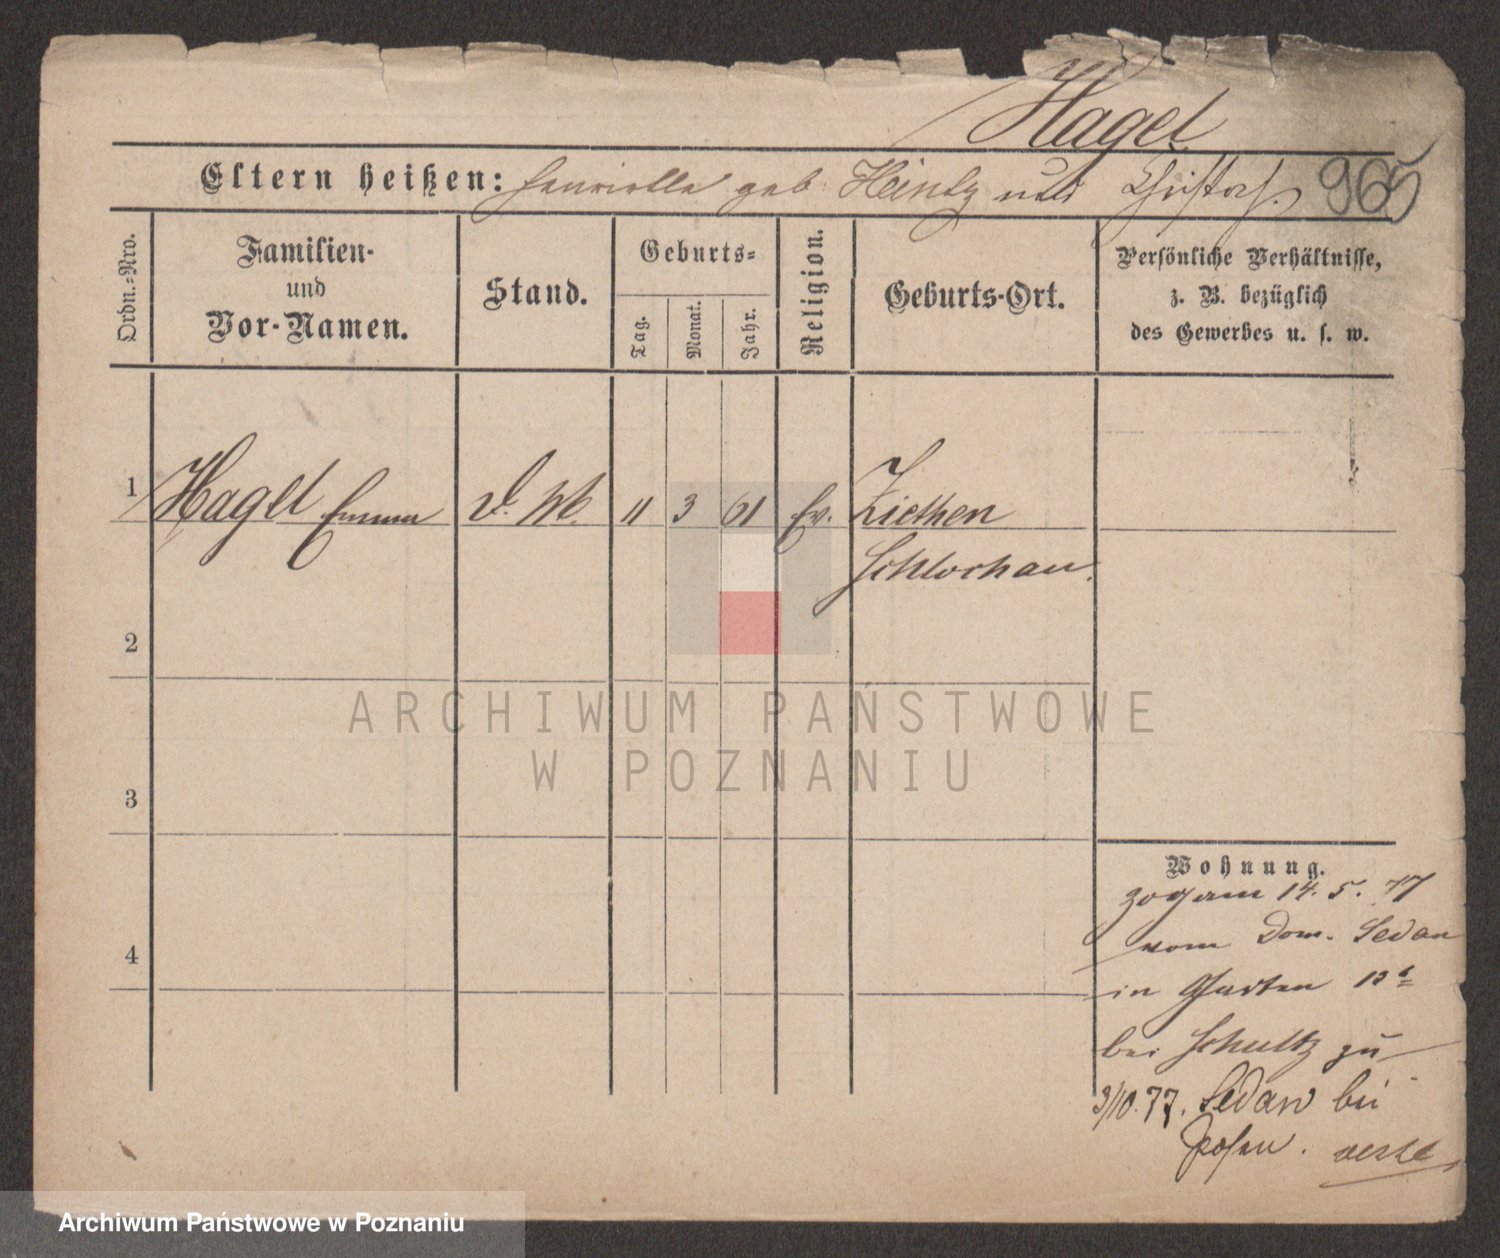 Hagel
Eltern heißen: Henriette geb. Heintz und Christof. 965
Ordn.-Nro.
Familien-
und
Vor-Namen.
Stand.
Geburts-
Tag.
Monat.
Jahr.
Religion.
Geburts-Ort.
Persönliche Verhältnisse,
z. B. bezüglich
des Gewerbes u. s. w.
1 Hagel Emma d. M. 11 3 61 Ev. Ziethen
Schlochau.
2
3
4
Wohnung.
zog am 14. 5. 77
vom Dom. Sedan
in Garten
bei Schultz zu
3/10.77. Sedan bei
Posen.
ARCHIWUM PAŃSTWOWE
W POZNANIU
Archiwum Państwowe w Poznaniu